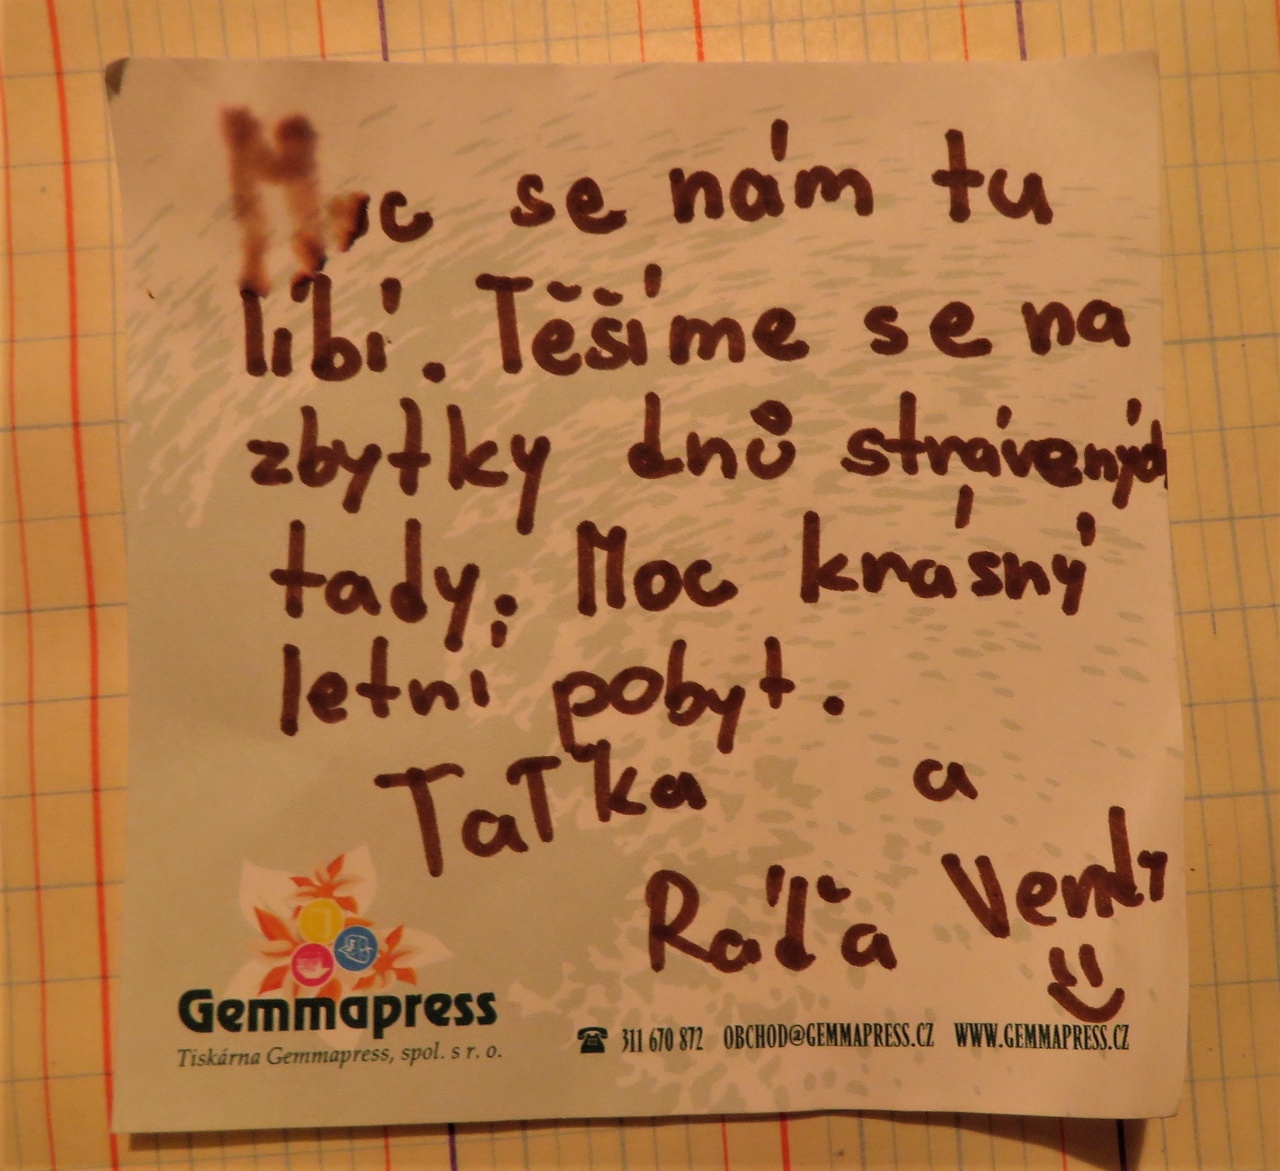 Moc se nám tu
líbí. Těšíme se na
zbytky dnů strávených
tady. Moc krásný
letní pobyt.
Taťka a
Ráďa Vendy
Gemmapress
Tiskárna Gemmapress, spol. s r. o.
311 670 872 OBCHOD@GEMMAPRESS.CZ WWW.GEMMAPRESS.CZ